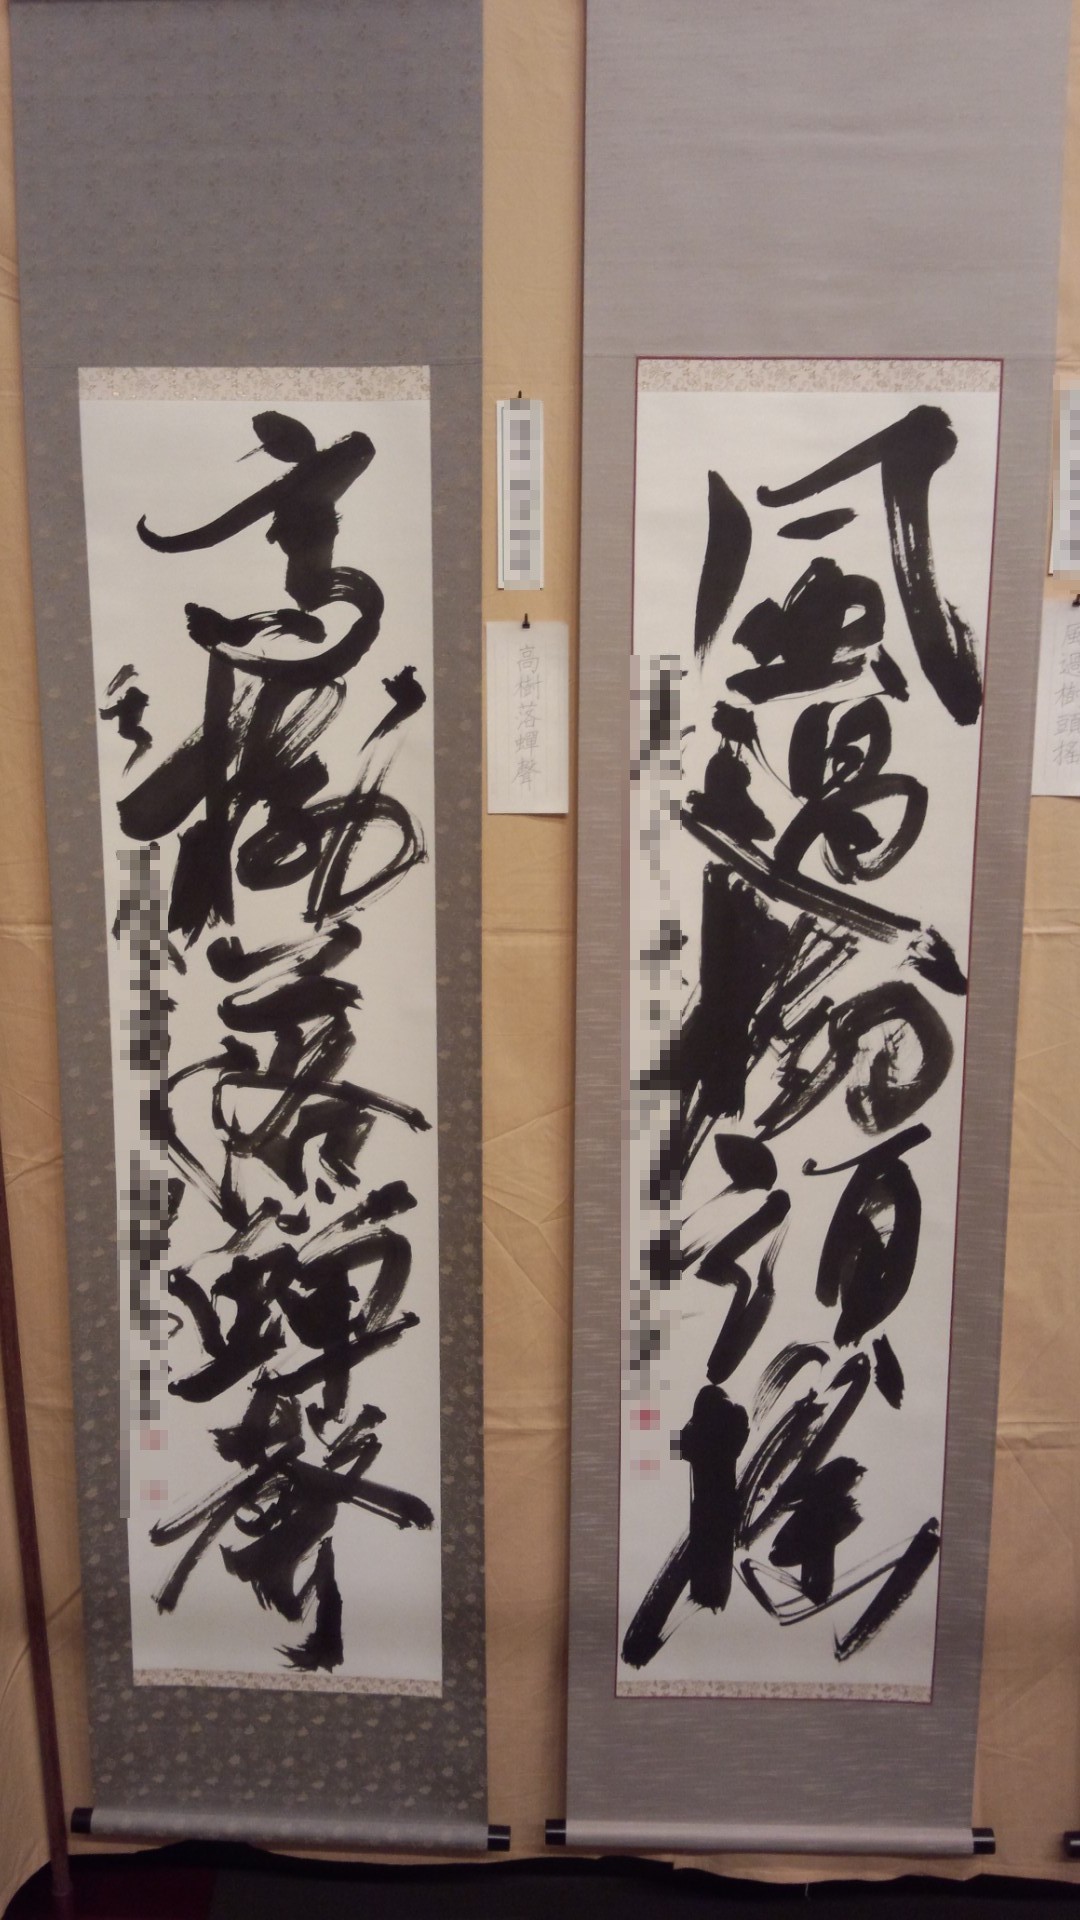 風過樹頭搖
風過樹頭搖
高樹落蟬聲
高樹落蟬聲